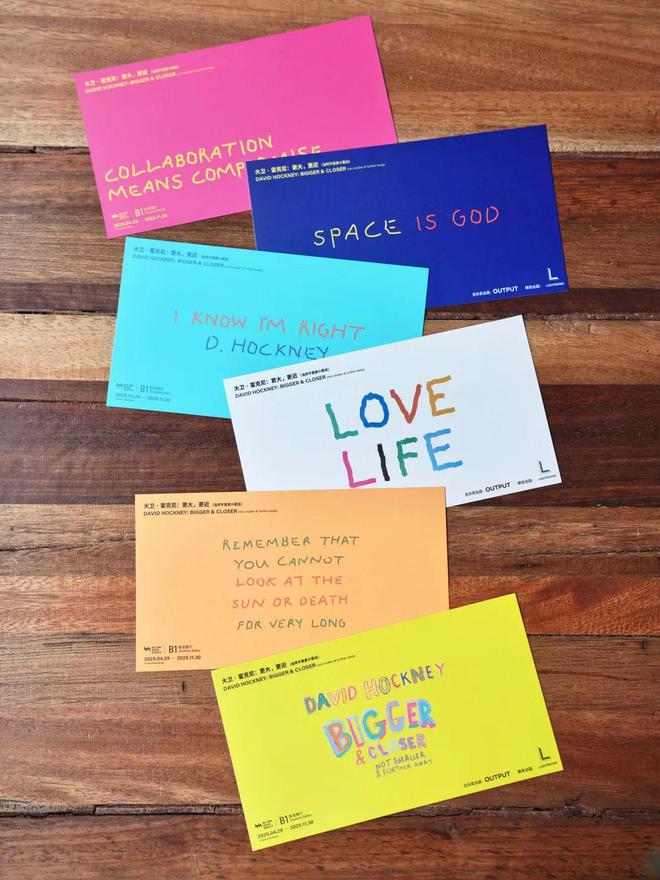 大卫·霍克尼：更大，更近（当然不是更小更远）
DAVID HOCKNEY: BIGGER & CLOSER (not smaller & further away)
COLLABORATION
MEANS COMPROMISE
B1
2025.04.29 — 2025.11.30
大卫·霍克尼：更大，更近（当然不是更小更远）
DAVID HOCKNEY: BIGGER & CLOSER (not smaller & further away)
SPACE IS GOD
OUTPUT
LIGHTROOM
大卫·霍克尼：更大，更近（当然不是更小更远）
DAVID HOCKNEY: BIGGER & CLOSER (not smaller & further away)
I KNOW I'M RIGHT
D. HOCKNEY
B1
2025.04.29 — 2025.11.30
大卫·霍克尼：更大，更近（当然不是更小更远）
DAVID HOCKNEY: BIGGER & CLOSER (not smaller & further away)
LOVE
LIFE
OUTPUT
LIGHTROOM
大卫·霍克尼：更大，更近（当然不是更小更远）
DAVID HOCKNEY: BIGGER & CLOSER (not smaller & further away)
REMEMBER THAT
YOU CANNOT
LOOK AT THE
SUN OR DEATH
FOR VERY LONG
B1
2025.04.29 — 2025.11.30
大卫·霍克尼：更大，更近（当然不是更小更远）
DAVID HOCKNEY: BIGGER & CLOSER (not smaller & further away)
DAVID HOCKNEY
BIGGER
& CLOSER
NOT SMALLER
& FURTHER AWAY
B1
2025.04.29 — 2025.11.30
OUTPUT
LIGHTROOM